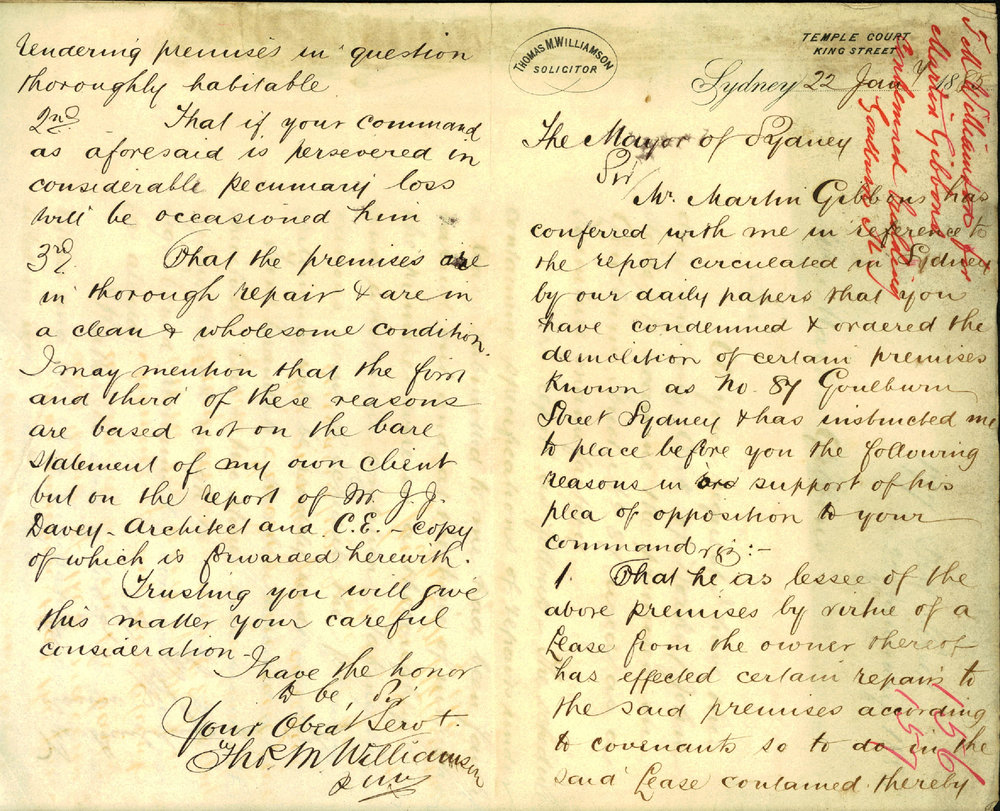 THOMAS M. WILLIAMSON
SOLICITOR
TEMPLE COURT
KING STREET
Sydney 22 Jany 1885
The Mayor of Sydney
Sir
Mr. Martin Gibbons has
conferred with me in reference to
the report circulated in Sydney
by our daily papers that you
have condemned & ordered the
demolition of certain premises
known as No. 87 Goulburn
Street Sydney & has instructed me
to place before you the following
reasons in support of his
plea of opposition to your
command viz:-
1. That he as lessee of the
above premises by virtue of a
Lease from the owner thereof
has effected certain repairs to
the said premises according
to covenants so to do in the
said Lease contained thereby
rendering premises in question
thoroughly habitable
2nd. That if your command
as aforesaid is persevered in
considerable pecuniary loss
will be occasioned him
3rd. That the premises are
in thorough repair & are in
a clean & wholesome condition.
I may mention that the first
and third of these reasons
are based not on the bare
statement of my own client
but on the report of Mr. J.J.
Davey - Architect and C.E. - copy
of which is forwarded herewith.
Trusting you will give
this matter your careful
consideration -
I have the honor
to be, Sir
Your Obedt Servt.
Thos. M. Williamson
T M Williamson for
Martin Gibbons
condemned building
Goulburn St
156
157